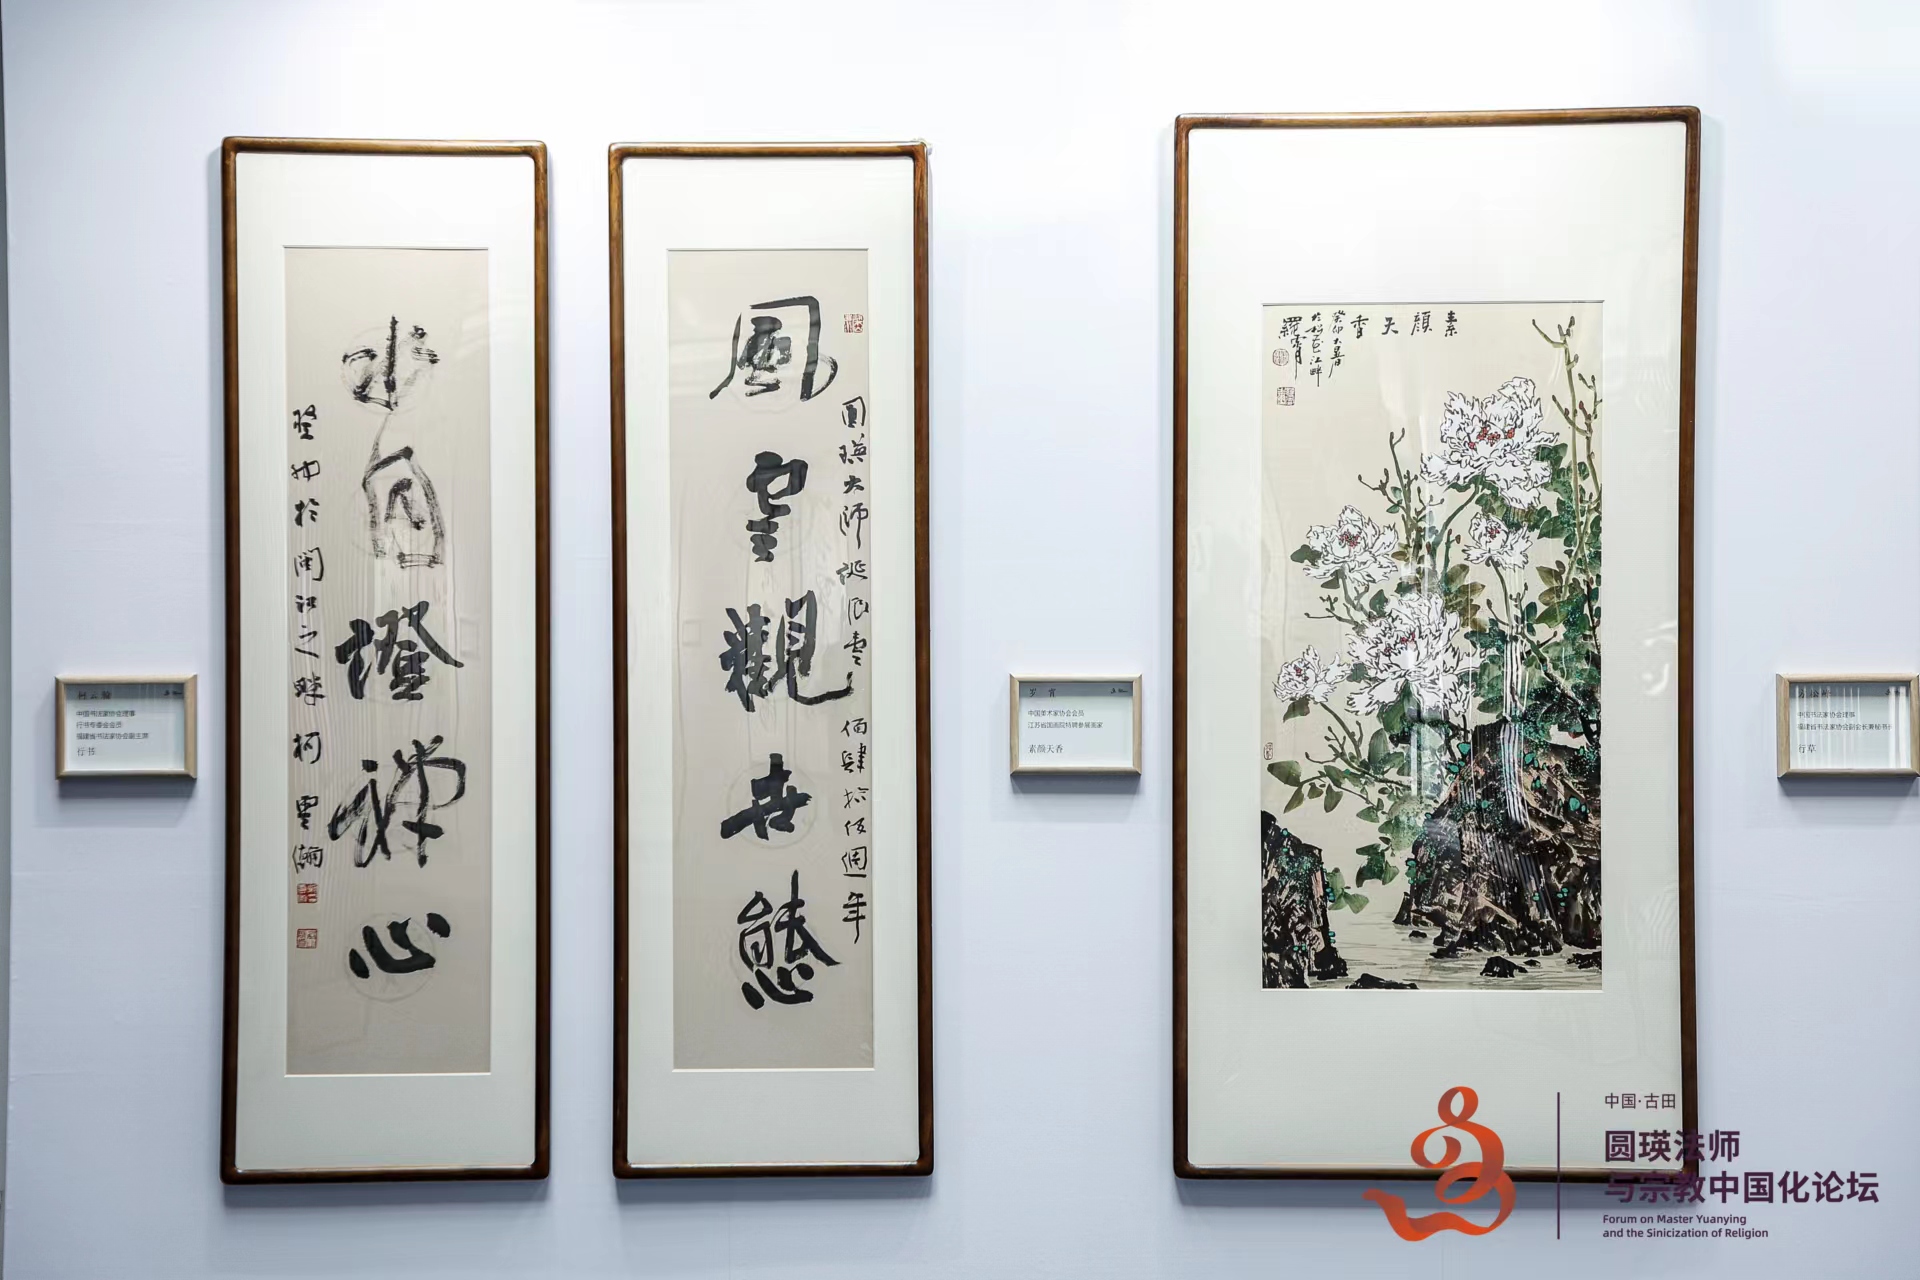 柯云瀚
中国书法家协会理事
行书专委会会员
福建省书法家协会副主席
行书
圓瑛大師誕辰壹佰肆拾伍週年
風雲觀世態
水月證禪心
癸卯於閩江之畔柯雲瀚
罗宵
中国美术家协会会员
江苏省国画院特聘参展画家
素颜天香
素顏天香
癸卯大暑日
江畔
羅宵
中国书法家协会理事
福建省书法家协会副会长兼秘书长
行草
中国·古田
圆瑛法师
与宗教中国化论坛
Forum on Master Yuanying
and the Sinicization of Religion